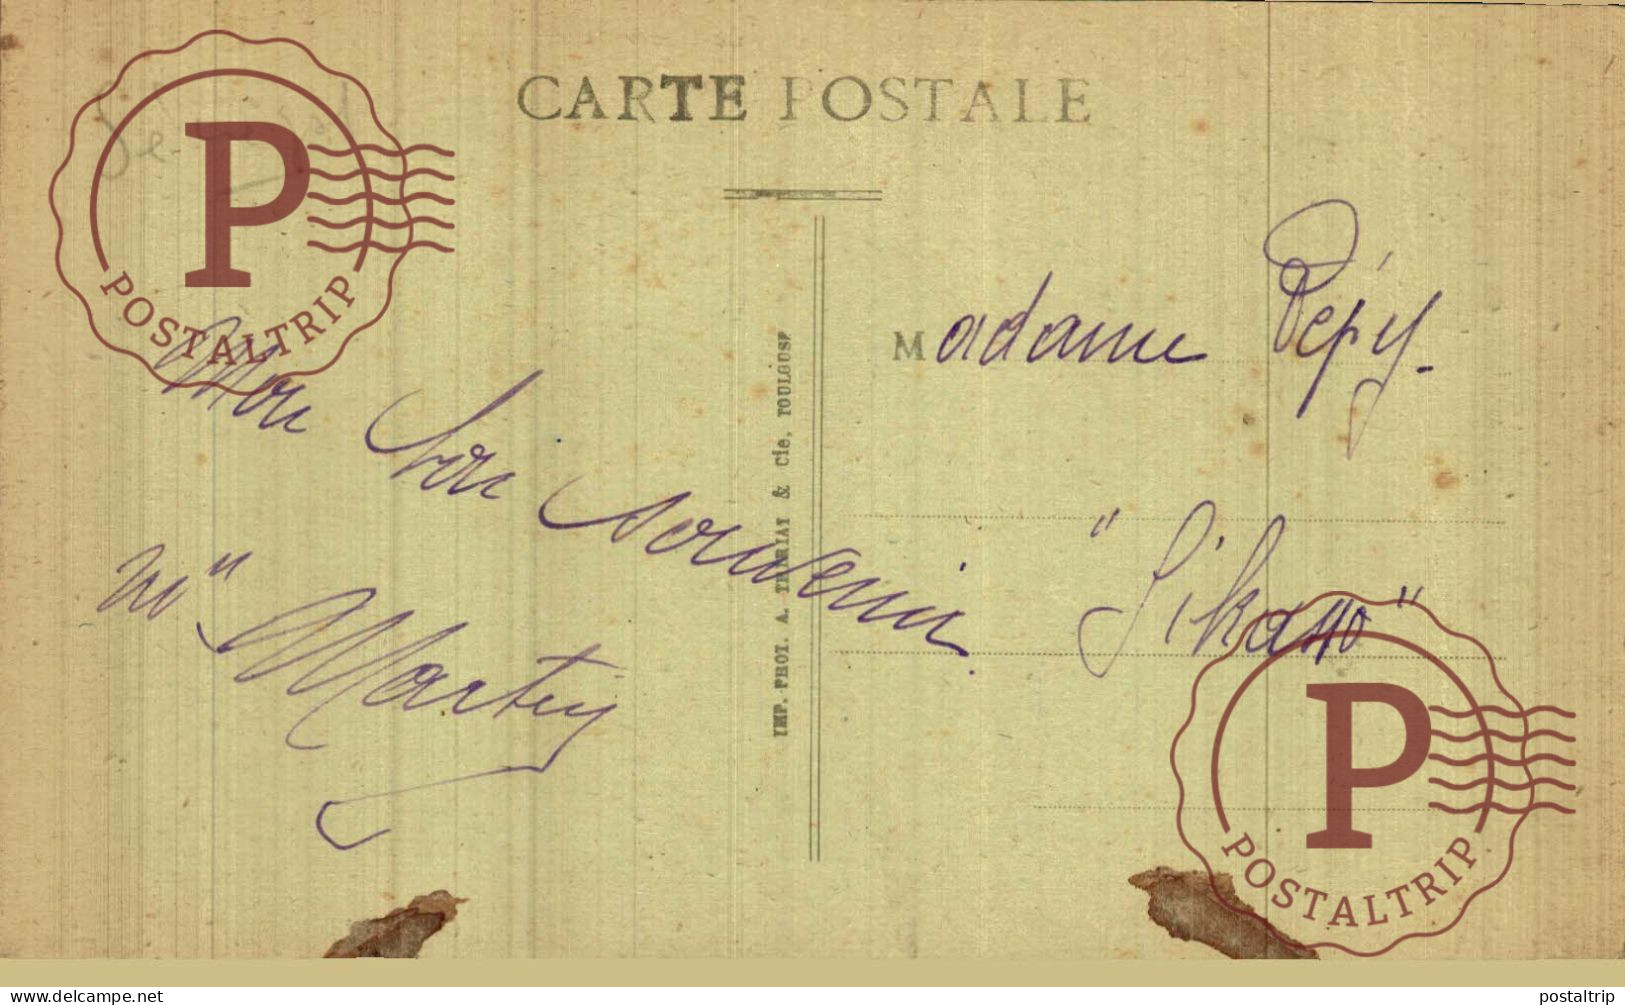 CARTE POSTALE
Mon bon souvenir
Martin
IMP. PHOT. A. THIRIAT & Cie, TOULOUSE
Madame Pépy.
"Sikasso"
P
POSTALTRIP
P
POSTALTRIP
www.delcampe.net
postaltrip